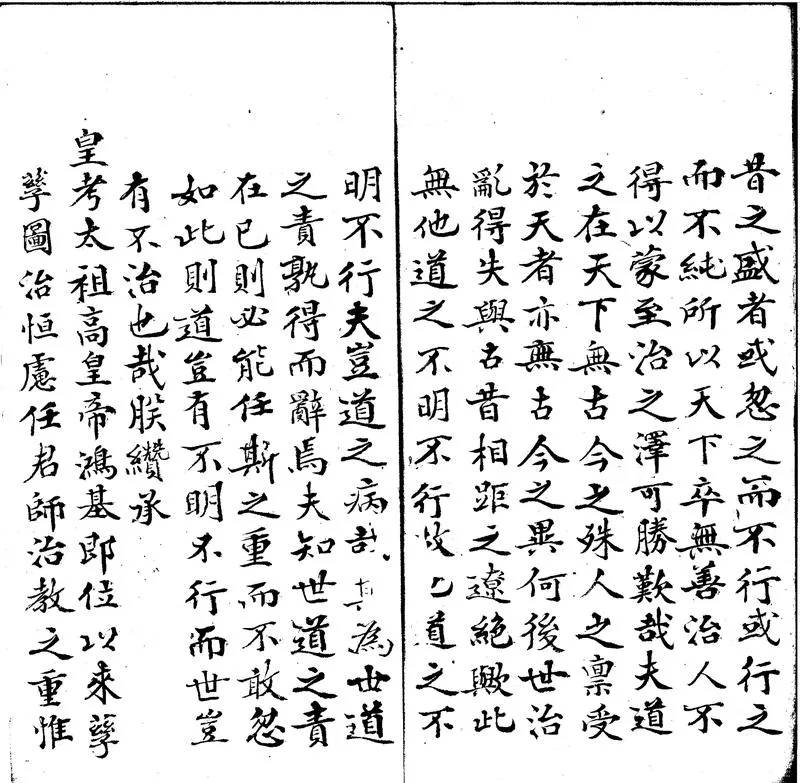 昔之盛者或忽之而不行或行之
而不純所以天下卒無善治人不
得以蒙至治之澤可勝歎哉夫道
之在天下無古今之殊人之禀受
於天者亦無古今之異何後世治
亂得失與古昔相距之遼絕歟此
無他道之不明不行故也道之不
明不行夫豈道之病哉其為世道
之責孰得而辭焉夫知世道之責
在已則必能任斯之重而不敢忽
如此則道豈有不明不行而世豈
有不治也哉朕纘承
皇考太祖高皇帝鴻基即位以來孳
孳圖治恒慮任君師治教之重惟